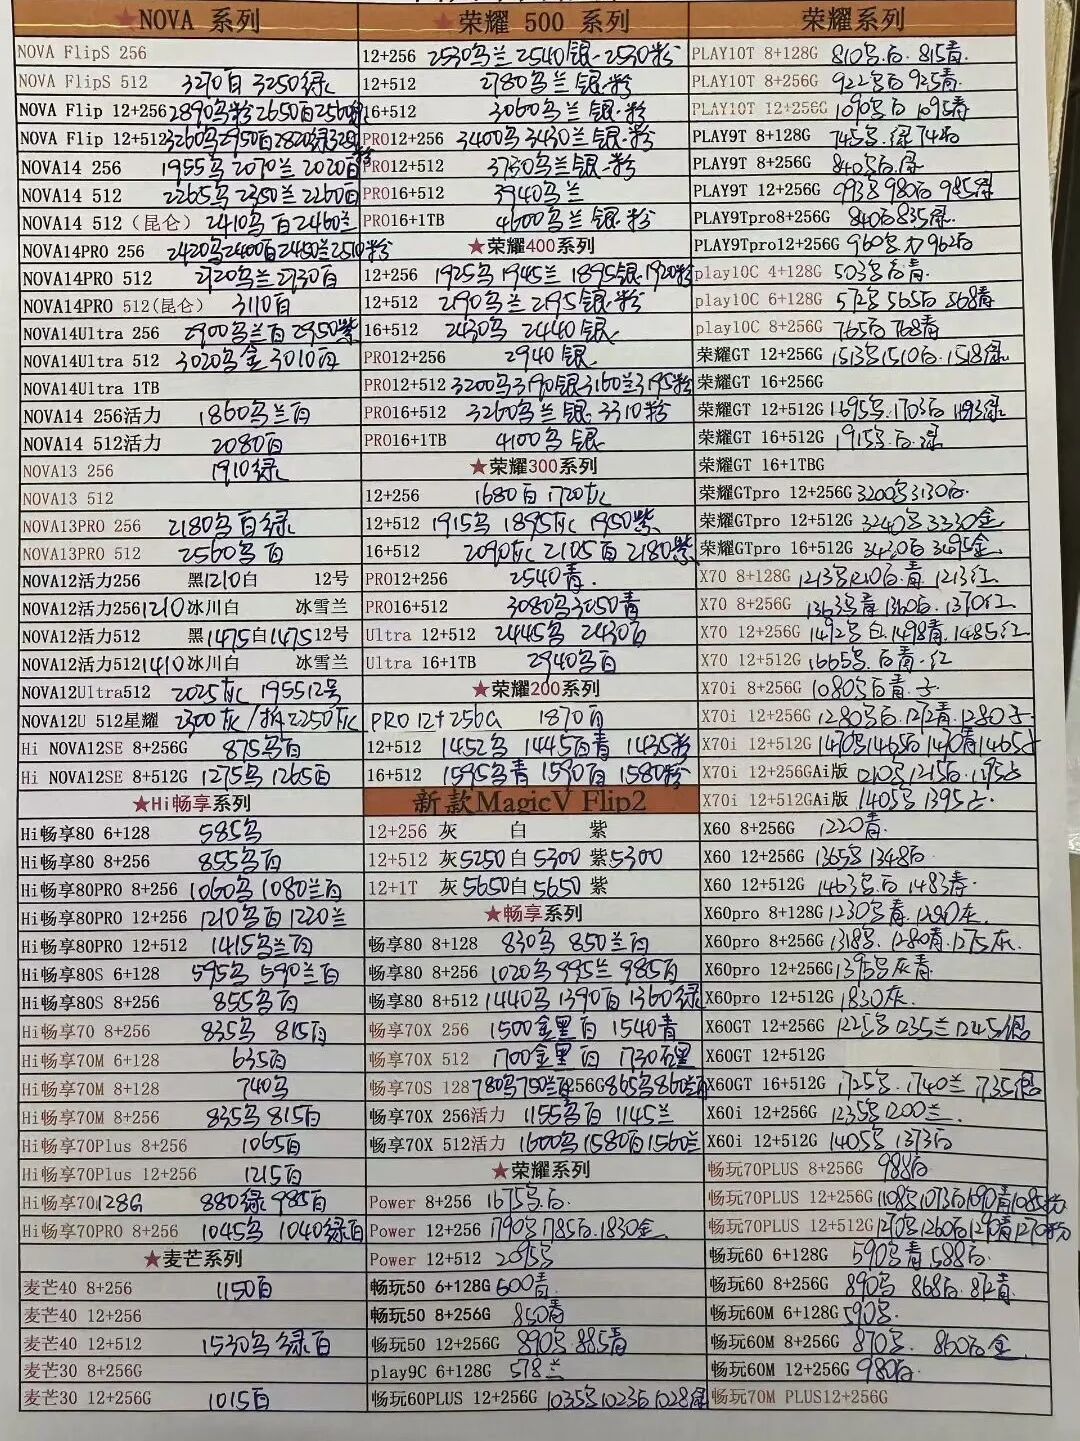 ★NOVA 系列
NOVA FlipS 256
NOVA FlipS 512 3270百 3250绿
NOVA Flip 12+256 2890乌粉 2650百 2560绿
NOVA Flip 12+512 3260乌 2950百 2820绿
NOVA14 256 1955乌 2070兰 2020百
NOVA14 512 2265乌 2350兰 2260百
NOVA14 512 (昆仑) 2410乌百 2460兰
NOVA14PRO 256 2420乌 2400百 2480兰 2510粉
NOVA14PRO 512 2720乌兰 2730百
NOVA14PRO 512(昆仑) 3110百
NOVA14Ultra 256 2900乌兰百 2950紫
NOVA14Ultra 512 3020乌金 3010百
NOVA14Ultra 1TB
NOVA14 256活力 1860乌兰百
NOVA14 512活力 2080百
NOVA13 256 1910绿
NOVA13 512
NOVA13PRO 256 2180乌百绿
NOVA13PRO 512 2560乌百
NOVA12活力256 黑1210白 12号
NOVA12活力256 1210冰川白 冰雪兰
NOVA12活力512 黑1475白1475 12号
NOVA12活力512 1410冰川白 冰雪兰
NOVA12Ultra512 2025灰 1955 12号
NOVA12U 512星耀 2300灰/拆2250灰
Hi NOVA12SE 8+256G 875乌百
Hi NOVA12SE 8+512G 1275乌 1265百
★Hi畅享系列
Hi畅享80 6+128 585乌
Hi畅享80 8+256 855乌百
Hi畅享80PRO 8+256 1060乌 1080兰百
Hi畅享80PRO 12+256 1210乌百 1220兰
Hi畅享80PRO 12+512 1415乌兰百
Hi畅享80S 6+128 595乌 590兰百
Hi畅享80S 8+256 855乌百
Hi畅享70 8+256 835乌 815百
Hi畅享70M 6+128 635百
Hi畅享70M 8+128 740乌
Hi畅享70M 8+256 835乌 815百
Hi畅享70Plus 8+256 1065百
Hi畅享70Plus 12+256 1215百
Hi畅享70 128G 880绿 985百
Hi畅享70PRO 8+256 1045乌 1040绿百
★麦芒系列
麦芒40 8+256 1150百
麦芒40 12+256
麦芒40 12+512 1530乌绿百
麦芒30 8+256G
麦芒30 12+256G 1015百
★荣耀 500 系列
12+256 2530乌兰 2540银 2530粉
12+512 2780乌兰银.粉
16+512 3060乌兰银.粉
PRO12+256 3400乌 3430兰银.粉
PRO12+512 3730乌兰银.粉
PRO16+512 3940乌兰
PRO16+1TB 4600乌兰银.粉
★荣耀400系列
12+256 1925乌 1945兰 1895银 1920粉
12+512 2190乌兰 2195银.粉
16+512 2430乌 2440银
PRO12+256 2940银
PRO12+512 3200乌 3190银 3160兰 3195粉
PRO16+512 3260乌兰银 3310粉
PRO16+1TB 4100乌银
★荣耀300系列
12+256 1680百 1720灰
12+512 1915乌 1895灰 1950紫
16+512 2090灰 2105百 2180紫
PRO12+256 2540青.
PRO16+512 3080乌 3050青
Ultra 12+512 2445乌 2430百
Ultra 16+1TB 2940乌百
★荣耀200系列
PRO 12+256G 1870百
12+512 1452乌 1445百青 1435粉
16+512 1595乌青 1590百 1580粉
新款MagicV Flip2
12+256 灰 白 紫
12+512 灰5250白5300 紫5300
12+1T 灰5650白5650 紫
★畅享系列
畅享80 8+128 830乌 850兰百
畅享80 8+256 1020乌 995兰 985百
畅享80 8+512 1440乌 1390百 1360绿
畅享70X 256 1500金黑百 1540青
畅享70X 512 1700金黑百 1730
畅享70S 128 780乌750兰百256G865乌860兰百
畅享70X 256活力 1155乌百 1145兰
畅享70X 512活力 1600乌 1580百 1560兰
★荣耀系列
Power 8+256 1675乌.白.
Power 12+256 1790乌.1785白.1830金.
Power 12+512 2095乌
畅玩50 6+128G 600青.
畅玩50 8+256G 850青
畅玩50 12+256G 890乌.885青
play9C 6+128G 578兰
畅玩60PLUS 12+256G 1035乌 1023白 1028绿
荣耀系列
PLAY10T 8+128G 810乌.白. 815青.
PLAY10T 8+256G 922乌白 925青.
PLAY10T 12+256G 1090乌白 1095青
PLAY9T 8+128G 745乌.绿 742白
PLAY9T 8+256G 840乌白.绿
PLAY9T 12+256G 993乌 980白 985绿
PLAY9Tpro8+256G 840白 835绿.
PLAY9Tpro12+256G 960乌 962白
play10C 4+128G 503乌白青.
play10C 6+128G 572乌 565白 568青
play10C 8+256G 765白 768青
荣耀GT 12+256G 1513乌 1510白. 1518绿
荣耀GT 16+256G
荣耀GT 12+512G 1695乌.1703白 1693绿
荣耀GT 16+512G 1915乌.白.绿
荣耀GT 16+1TBG
荣耀GTpro 12+256G 3200乌 3130白.
荣耀GTpro 12+512G 3240乌 3330金
荣耀GTpro 16+512G 3430白 3495金.
X70 8+128G 1213乌 1210白.青 1213红
X70 8+256G 1363乌青 1360白. 1370红
X70 12+256G 1492乌 白.1498青.1485红
X70 12+512G 1665乌.白青.红
X70i 8+256G 1080乌白青.
X70i 12+256G 1280乌白.1272青.1280
X70i 12+512G 1470乌 1465白 1470青 1465
X70i 12+256GAi版 1210乌 1215白. 1195
X70i 12+512GAi版 1405乌 1395
X60 8+256G 1220青.
X60 12+256G 1365乌 1348白.
X60 12+512G 1463乌.白 1483青.
X60pro 8+128G 1230乌青.1290灰.
X60pro 8+256G 1318乌. 1280青.1275灰.
X60pro 12+256G 1395乌灰青.
X60pro 12+512G 1830灰.
X60GT 12+256G 1225乌 1235兰 1245银
X60GT 12+512G
X60GT 16+512G 1725乌.1740兰 1735银
X60i 12+256G 1235乌 1200兰.
X60i 12+512G 1405乌 1373白
畅玩70PLUS 8+256G 988白
畅玩70PLUS 12+256G 1108乌 1073白 1090青 1085粉
畅玩70PLUS 12+512G 1270乌 1260白 1290青 1270粉
畅玩60 6+128G 590乌青 588白.
畅玩60 8+256G 890乌 868白.872青.
畅玩60M 6+128G 590乌.
畅玩60M 8+256G 870乌. 860白.金
畅玩60M 12+256G 980白.
畅玩70M PLUS12+256G